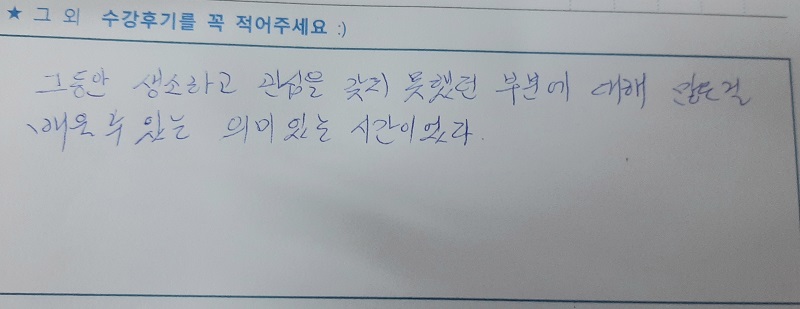 ★ 그 외 수강후기를 꼭 적어주세요 :)
그동안 생소하고 관심을 갖지 못했던 부분에 대해
배울 수 있는 의미 있는 시간이었다.